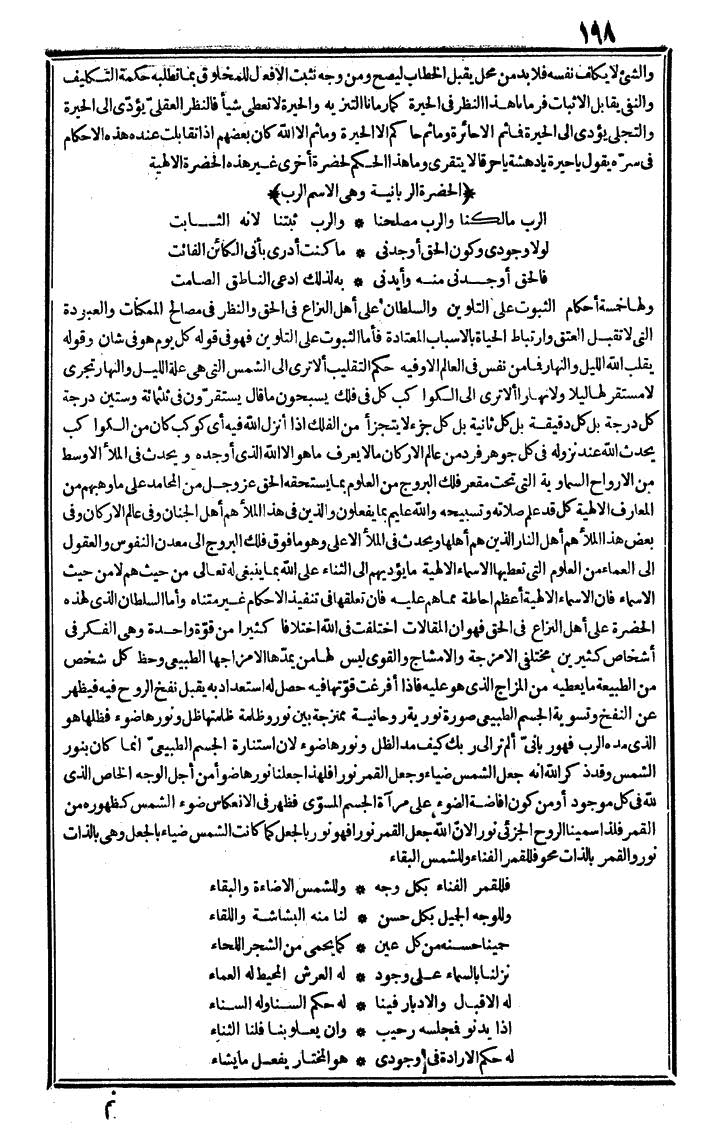 ١٩٨
والشئ لا يكلف نفسه فلا بد من محل يقبل الخطاب ليصح ومن وجه نثبت الافعل للمخلوق بما تطلبه حكمة التكليف
والنفي يقابل الاثبات فرماها هذا النظر في الحيرة كما رمانا التنزيه والحيرة لا تعطى شيأ فالنظر العقلي يؤدّى الى الحيرة
والتجلى يؤدى الى الحيرة فما ثم الاحائرة وما ثم حاكم الا الحيرة وما ثم الا الله كان بعضهم اذا تقابلت عنده هذه الاحكام
في سرّه يقول يا حيرة يا دهشة يا حرقا لا يتقرى وما هذا الحكم لحضرة أخرى غير هذه الحضرة الالهية
﴿الحضرة الربانية وهى الاسم الرب﴾
الرب مالكنا والرب مصلحنا * والرب ثبتنا لانه الثابت
لولا وجودى وكون الحق أوجدنى * ما كنت أدرى بأنى الكائن الفائت
فالحق أوجدنى منه وأيدنى * به لذلك ادعى الناطق الصامت
ولها خمسة أحكام الثبوت على التلوين والسلطان على أهل النزاع في الحق والنظر في مصالح الممكنات والعبودة
التى لا تقبل العتق وارتباط الحياة بالاسباب المعتادة فأما الثبوت على التلوين فهو في قوله كل يوم هو في شان وقوله
يقلب الله الليل والنهار فما من نفس في العالم الا وفيه حكم التقليب ألا ترى الى الشمس التى هى علة الليل والنهار تجرى
لا مستقر لها ليلا ولا نهارا ألا ترى الى الكواكب كل في فلك يسبحون ما قال يستقرّون في ثلثمائة وستين درجة
كل درجة بل كل دقيقة بل كل ثانية بل كل جزء لا يتجزأ من الفلك اذا أنزل الله فيه أى كوكب كان من الكواكب
يحدث الله عند نزوله في كل جوهر فرد من عالم الاركان ما لا يعرف ما هو الا الله الذى أوجده ويحدث في الملأ الاوسط
من الارواح السماوية التى تحت مقعر فلك البروج من العلوم بما يستحقه الحق عز وجل من المحامد على ما وهبهم من
المعارف الالهية كل قد علم صلاته وتسبيحه والله عليم بما يفعلون والذين في هذا الملأ هم أهل الجنان وفي عالم الاركان وفى
بعض هذا الملأ هم أهل النار الذين هم أهلها ويحدث في الملأ الاعلى وهو ما فوق فلك البروج الى معدن النفوس والعقول
الى العماء من العلوم التى تعطيها الاسماء الالهية ما يؤديهم الى الثناء على الله بما ينبغى له تعالى من حيث هم لا من حيث
الاسماء فان الاسماء الالهية أعظم احاطة مما هم عليه فان تعلقها في تنفيذ الاحكام غير متناه وأما السلطان الذى لهذه
الحضرة على أهل النزاع في الحق فهو ان المقالات اختلفت في الله اختلافا كثيرا من قوّة واحدة وهى الفكر في
أشخاص كثيرين مختلفى الامزجة والامشاج والقوى ليس لها من يمدّها الا مزاجها الطبيعى وحظ كل شخص
من الطبيعة ما يعطيه من المزاج الذى هو عليه فاذا أفرغت قوّتها فيه حصل له استعداد به يقبل نفخ الروح فيه فيظهر
عن النفخ وتسوية الجسم الطبيعى صورة نورية روحانية ممتزجة بين نور وظلمة ظلمتها ظل ونورها ضوء فظلها هو
الذى مده الرب فهو ربانىّ ألم تر الى ربك كيف مد الظل ونورها ضوء لان استنارة الجسم الطبيعىّ انما كان بنور
الشمس وقد ذكر الله انه جعل الشمس ضياء وجعل القمر نورا فلهذا جعلنا نورها ضوأ من أجل الوجه الخاص الذى
لله في كل موجود أو من كون افاضة الضوء على مرآة الجسم المسوّى فظهر في الانعكاس ضوء الشمس كظهوره من
القمر فلذا سمينا الروح الجزئى نورا لانّ الله جعل القمر نورا فهو نور بالجعل كما كانت الشمس ضياء بالجعل وهى بالذات
نور والقمر بالذات محو فللقمر الفناء وللشمس البقاء
فللقمر الفناء بكل وجه * وللشمس الاضاءة والبقاء
وللوجه الجميل بكل حسن * لنا منه البشاشة واللقاء
حمينا حسنه من كل عين * كما يحمى من الشجر اللحاء
نزلنا بالسماء على وجود * له العرش المحيط له العماء
له الاقبال والادبار فينا * له حكم السنا وله السناء
اذا يدنو فمجلسه رحيب * وان يعلو بنا فلنا الثناء
له حكم الارادة في وجودى * هو المختار يفعل ما يشاء